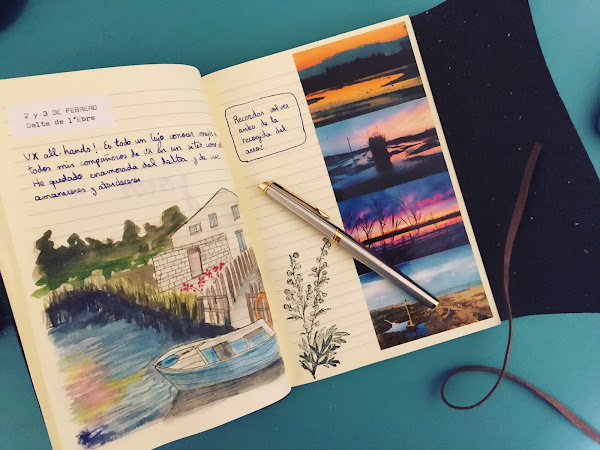 2 y 3 DE FEBRERO
Delta de l'Ebre
UX all hands! Es todo un lujo conocer mejor a
todos mis compañeros de UX en un sitio como
He quedado enamorada del delta y de sus
amaneceres y atardeceres
Recordar volver
antes de la
recogida del
arroz